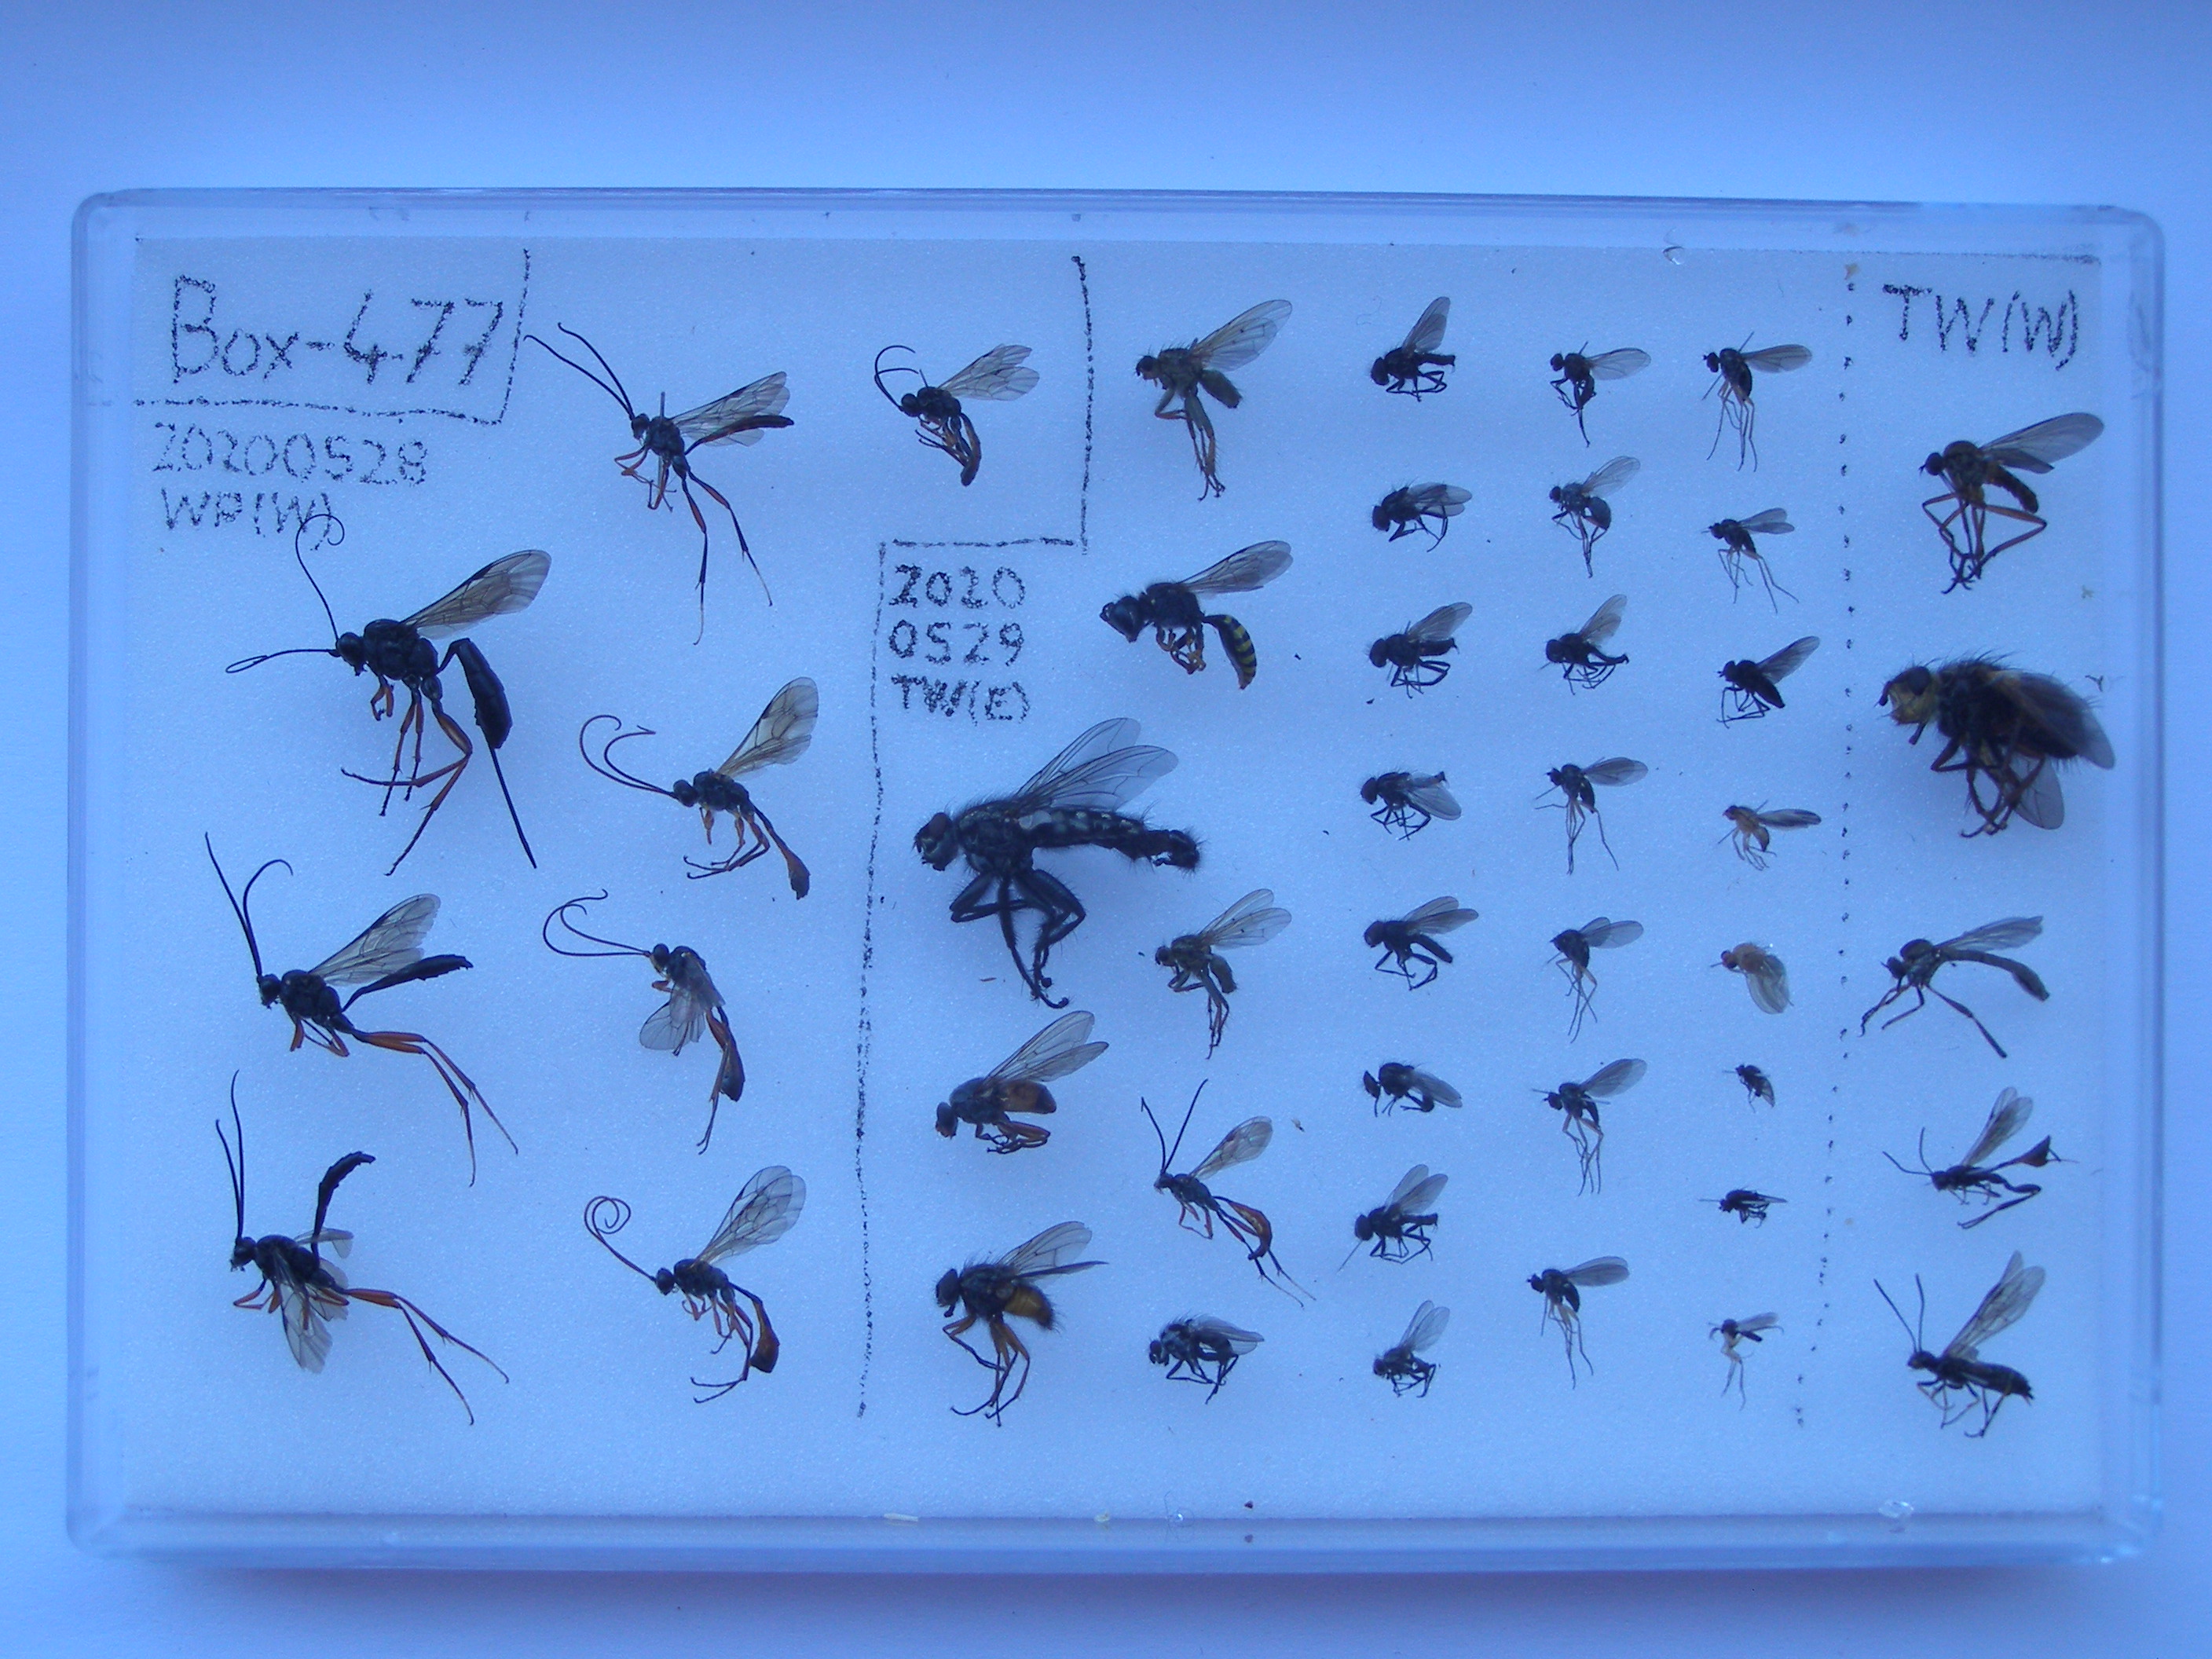 Box-477
20200528
WP(W)
2020
0529
TW(E)
TW(W)